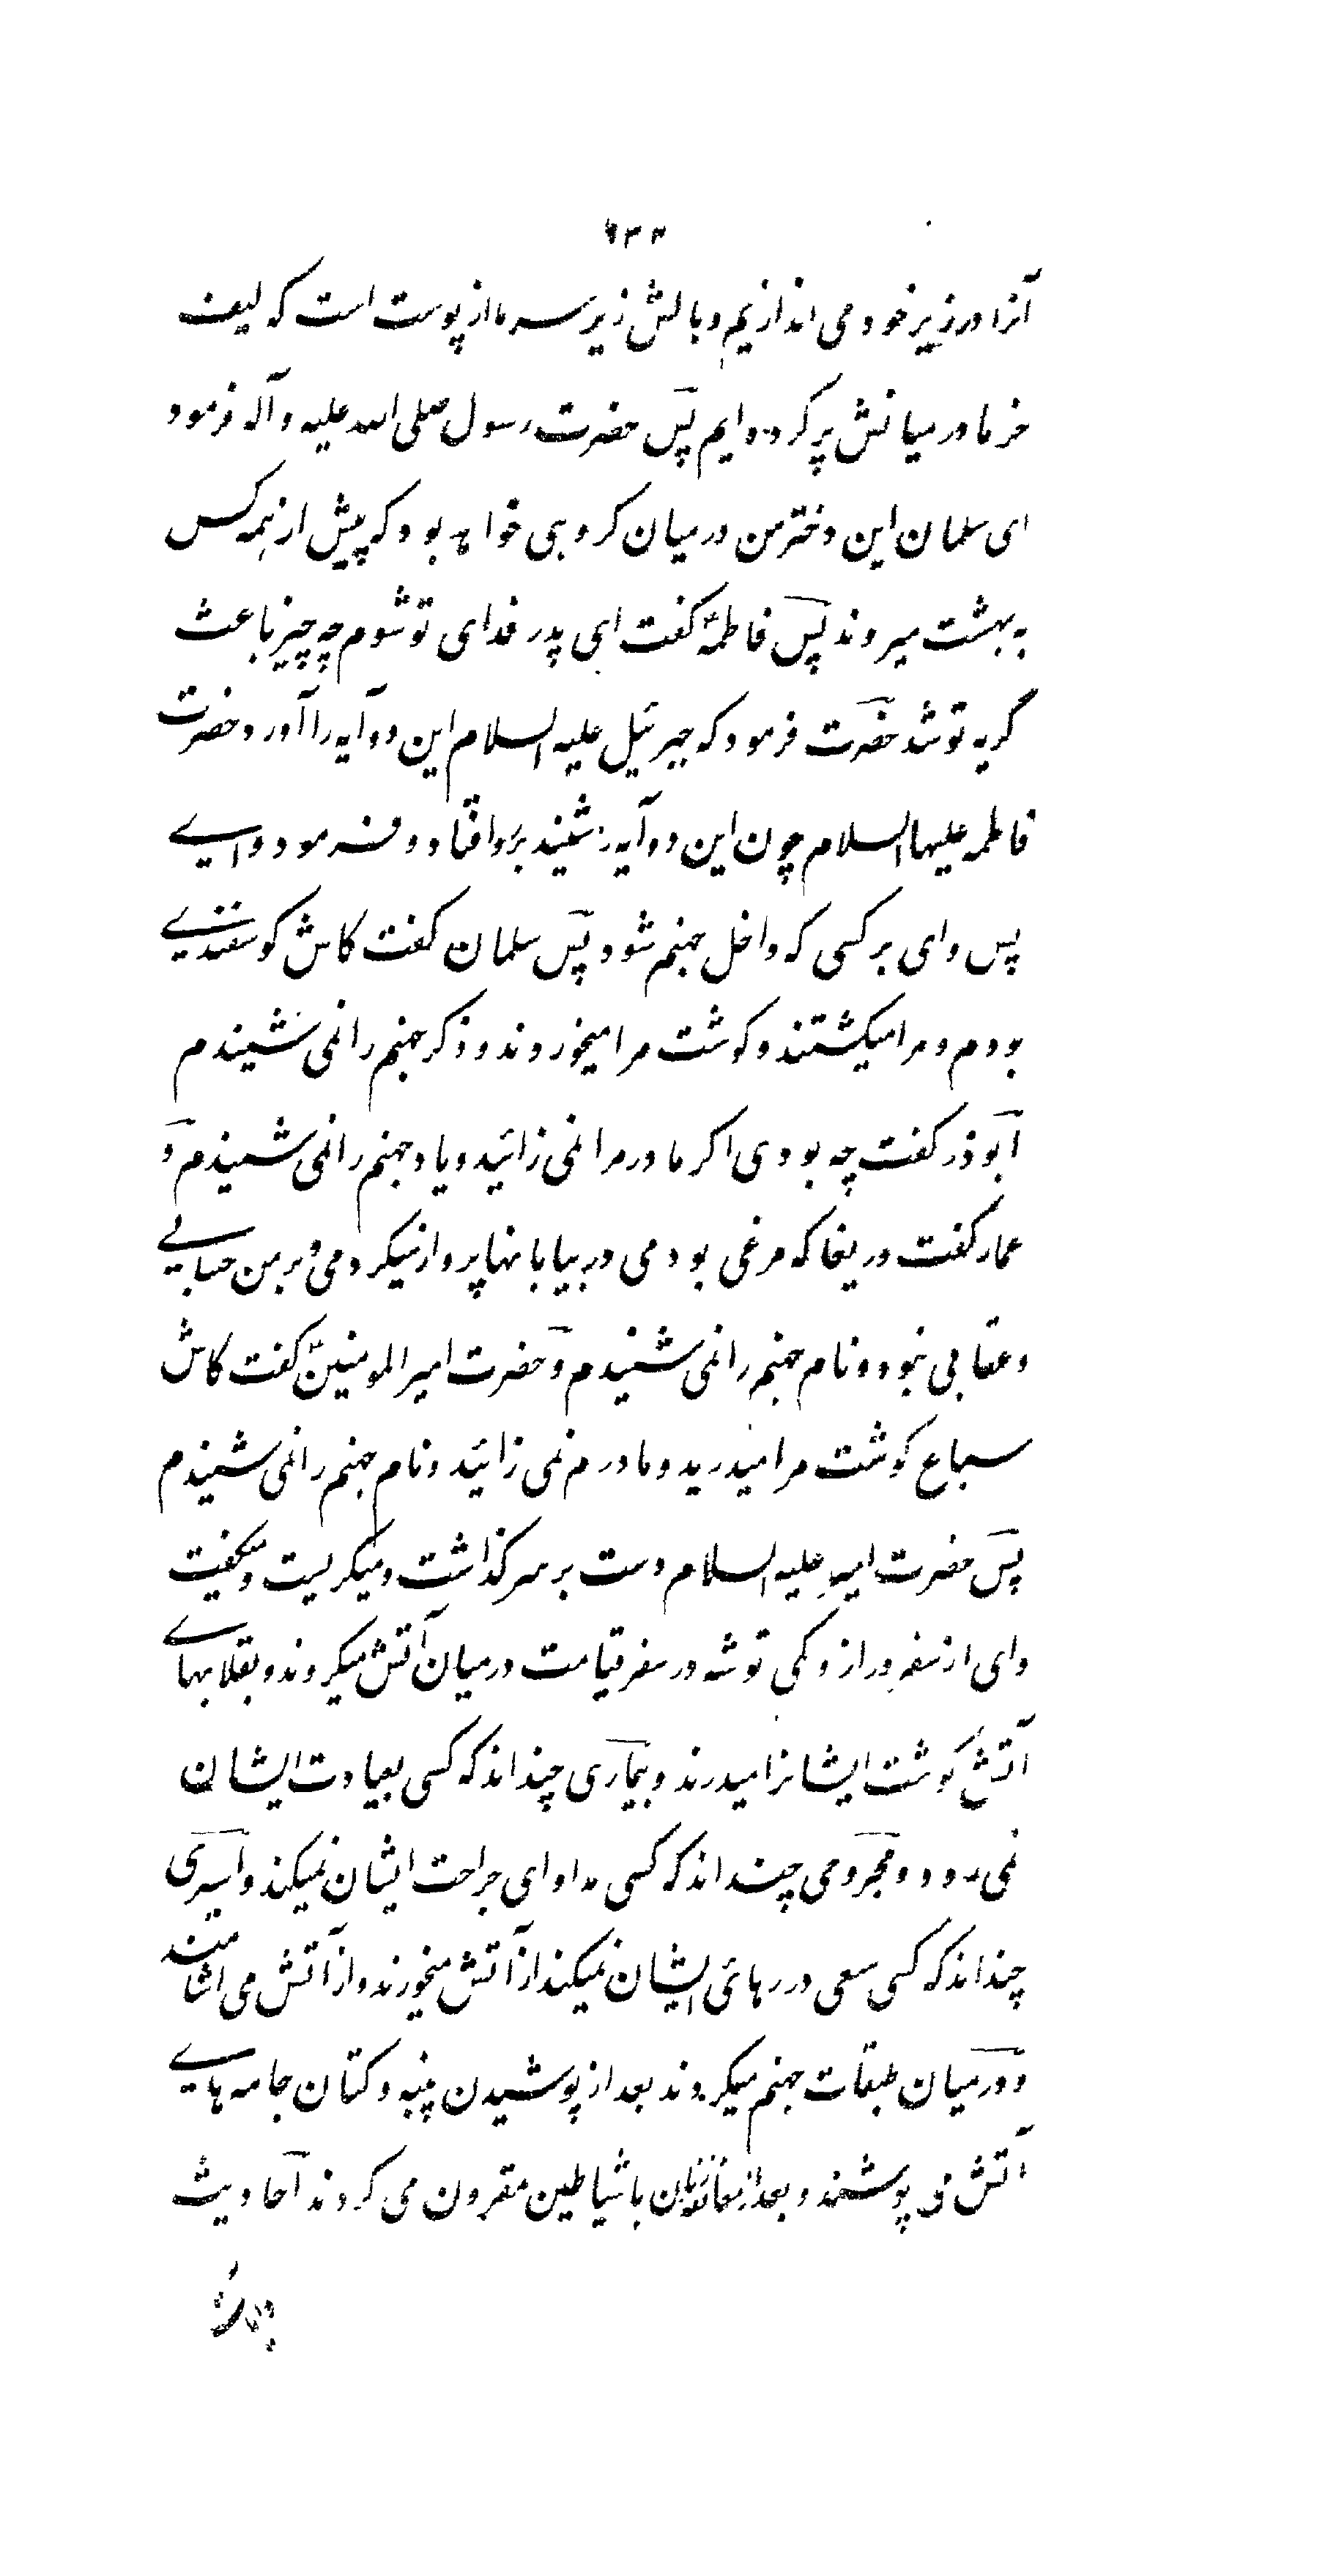 ۹۳۳
آنرا در زیر خود می اندازیم و بالش زیر سر ما از پوست است که لیف
خرما در میانش پر کرده ایم پس حضرت رسول صلی الله علیه و آله فرمود
ای سلمان این دختر من در میان گروهی خواهد بود که پیش از همه کس
به بهشت میروند پس فاطمهؑ گفت ای پدر فدای تو شوم چه چیز باعث
گریه تو شد حضرت فرمود که جبرئیل علیه السلام این دو آیه را آورد حضرت
فاطمه علیها السلام چون این دو آیه را شنید برو افتاد و فرمود وای
پس وای بر کسی که داخل جهنم شود پس سلمان گفت کاش گوسفندی
بودم و مرا میکشتند و گوشت مرا میخوردند و ذکر جهنم را نمی شنیدم
ابوذر گفت چه بودی اگر مادر مرا نمی زائید و یاد جهنم را نمی شنیدم و
عمار گفت دریغا که مرغی بودمی در بیابانها پرواز میکردمی و بر من حسابی
و عقابی نبود و نام جهنم را نمی شنیدم و حضرت امیر المومنینؑ گفت کاش
سباع گوشت مرا میدرید و مادرم نمی زائید و نام جهنم را نمی شنیدم
پس حضرت امیر علیه السلام دست بر سر گذاشت و میگریست و میگفت
وای از سفر دراز و کمی توشه در سفر قیامت در میان آتش میگردند و بقلابهای
آتش گوشت ایشانرا میدرند و بیماری چند اند که کسی بعیادت ایشان
نمی رود و مجروحی چند اند که کسی مداوای جراحت ایشان نمیکند و اسیری
چند اند که کسی سعی در رهائی ایشان نمیکند از آتش میخورند و از آتش می اشامند
و در میان طبقات جهنم میگردند بعد از پوشیدن پنبه و کتان جامه های
آتش می پوشند و بعد از معانقه زنان با شیاطین مقرون می گردند احادیث